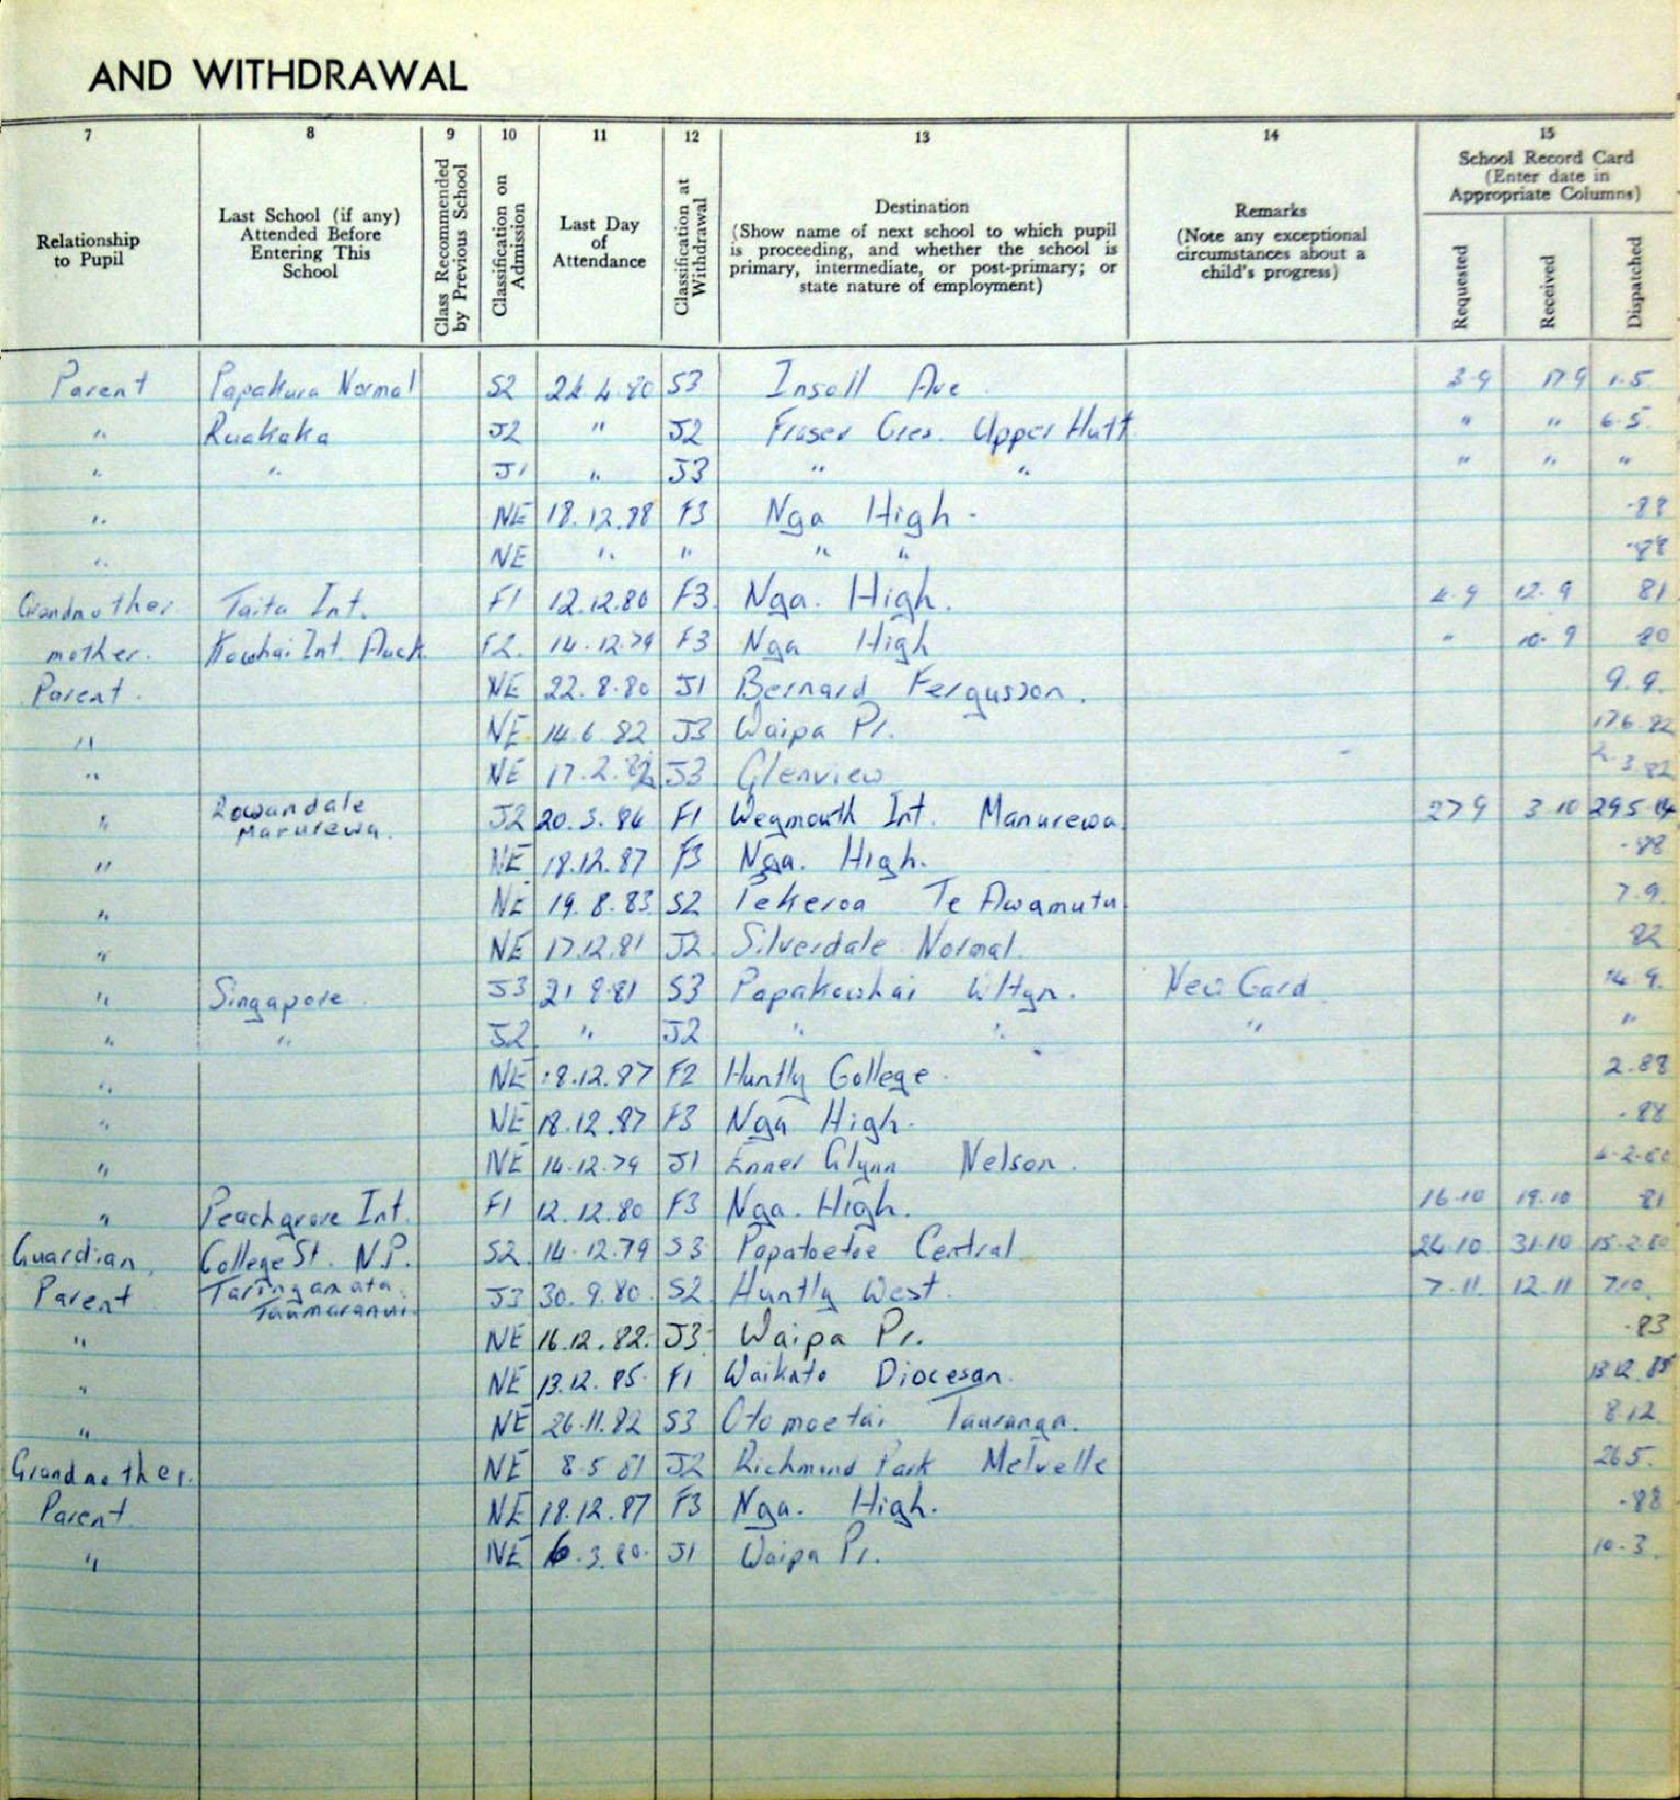 AND WITHDRAWAL
7 8 9 10 11 12 13 14 15
Relationship to Pupil
Last School (if any) Attended Before Entering This School
Class Recommended by Previous School
Classification on Admission
Last Day of Attendance
Classification at Withdrawal
Destination
(Show name of next school to which pupil is proceeding, and whether the school is primary, intermediate, or post-primary; or state nature of employment)
Remarks
(Note any exceptional circumstances about a child's progress)
School Record Card
(Enter date in Appropriate Columns)
Requested Received Dispatched
Parent Papakura Normal S2 24.4.80 S3 Insoll Ave 3.9 17.9 1.5
" Ruakaka J2 " J2 Fraser Cres. Upper Hutt " " 6.5
" " J1 " J3 " " " " "
" NE 18.12.88 F3 Nga High. -88
" NE " " " " -88
Grandmother Taita Int. F1 12.12.80 F3 Nga. High. 4.9 12.9 81
mother. Kowhai Int. Auck. F2. 14.12.79 F3 Nga High " 10.9 80
Parent. NE 22.8.80 J1 Bernard Fergusson. 9.9.
" NE 14.6.82 J3 Waipa Pr. 17.6.82
" NE 17.2.82 J3 Glenview 2.3.82
" Rowandale Manurewa. J2 20.3.86 F1 Weymouth Int. Manurewa 27.9 3.10 29.5
" NE 18.12.87 F3 Nga. High. -88
" NE 19.8.83 S2 Te Awamutu 7.9.
" NE 17.12.81 J2 Silverdale Normal. 82
" Singapore. J3 21.8.81 S3 Papakowhai Wltgn. New Card 14.9.
" " J2 " J2 " " " "
" NE 18.12.87 F2 Huntly College. 2.88
" NE 18.12.87 F3 Nga High. -88
" NE 14.12.79 J1 Enner Glynn Nelson. 4-2-80
" Peachgrove Int. F1 12.12.80 F3 Nga. High. 16.10 19.10 81
Guardian. College St. N.P. S2 14.12.79 S3 Papatoetoe Central 24.10 31.10 15.2.80
Parent Taringamatu Taumarunui. J3 30.9.80. S2 Huntly West. 7.11. 12.11 7.10.
" NE 16.12.82. J3 Waipa Pr. -83
" NE 13.12.85. F1 Waikato Diocesan. 13.12.85
" NE 26.11.82 S3 Otomoetai Tauranga. 8.12
Grandmother. NE 8.5.81 J2 Richmond Park Melville 26.5.
Parent. NE 18.12.87 F3 Nga. High. -88
" NE 6.3.80. J1 Waipa Pr. 10.3.